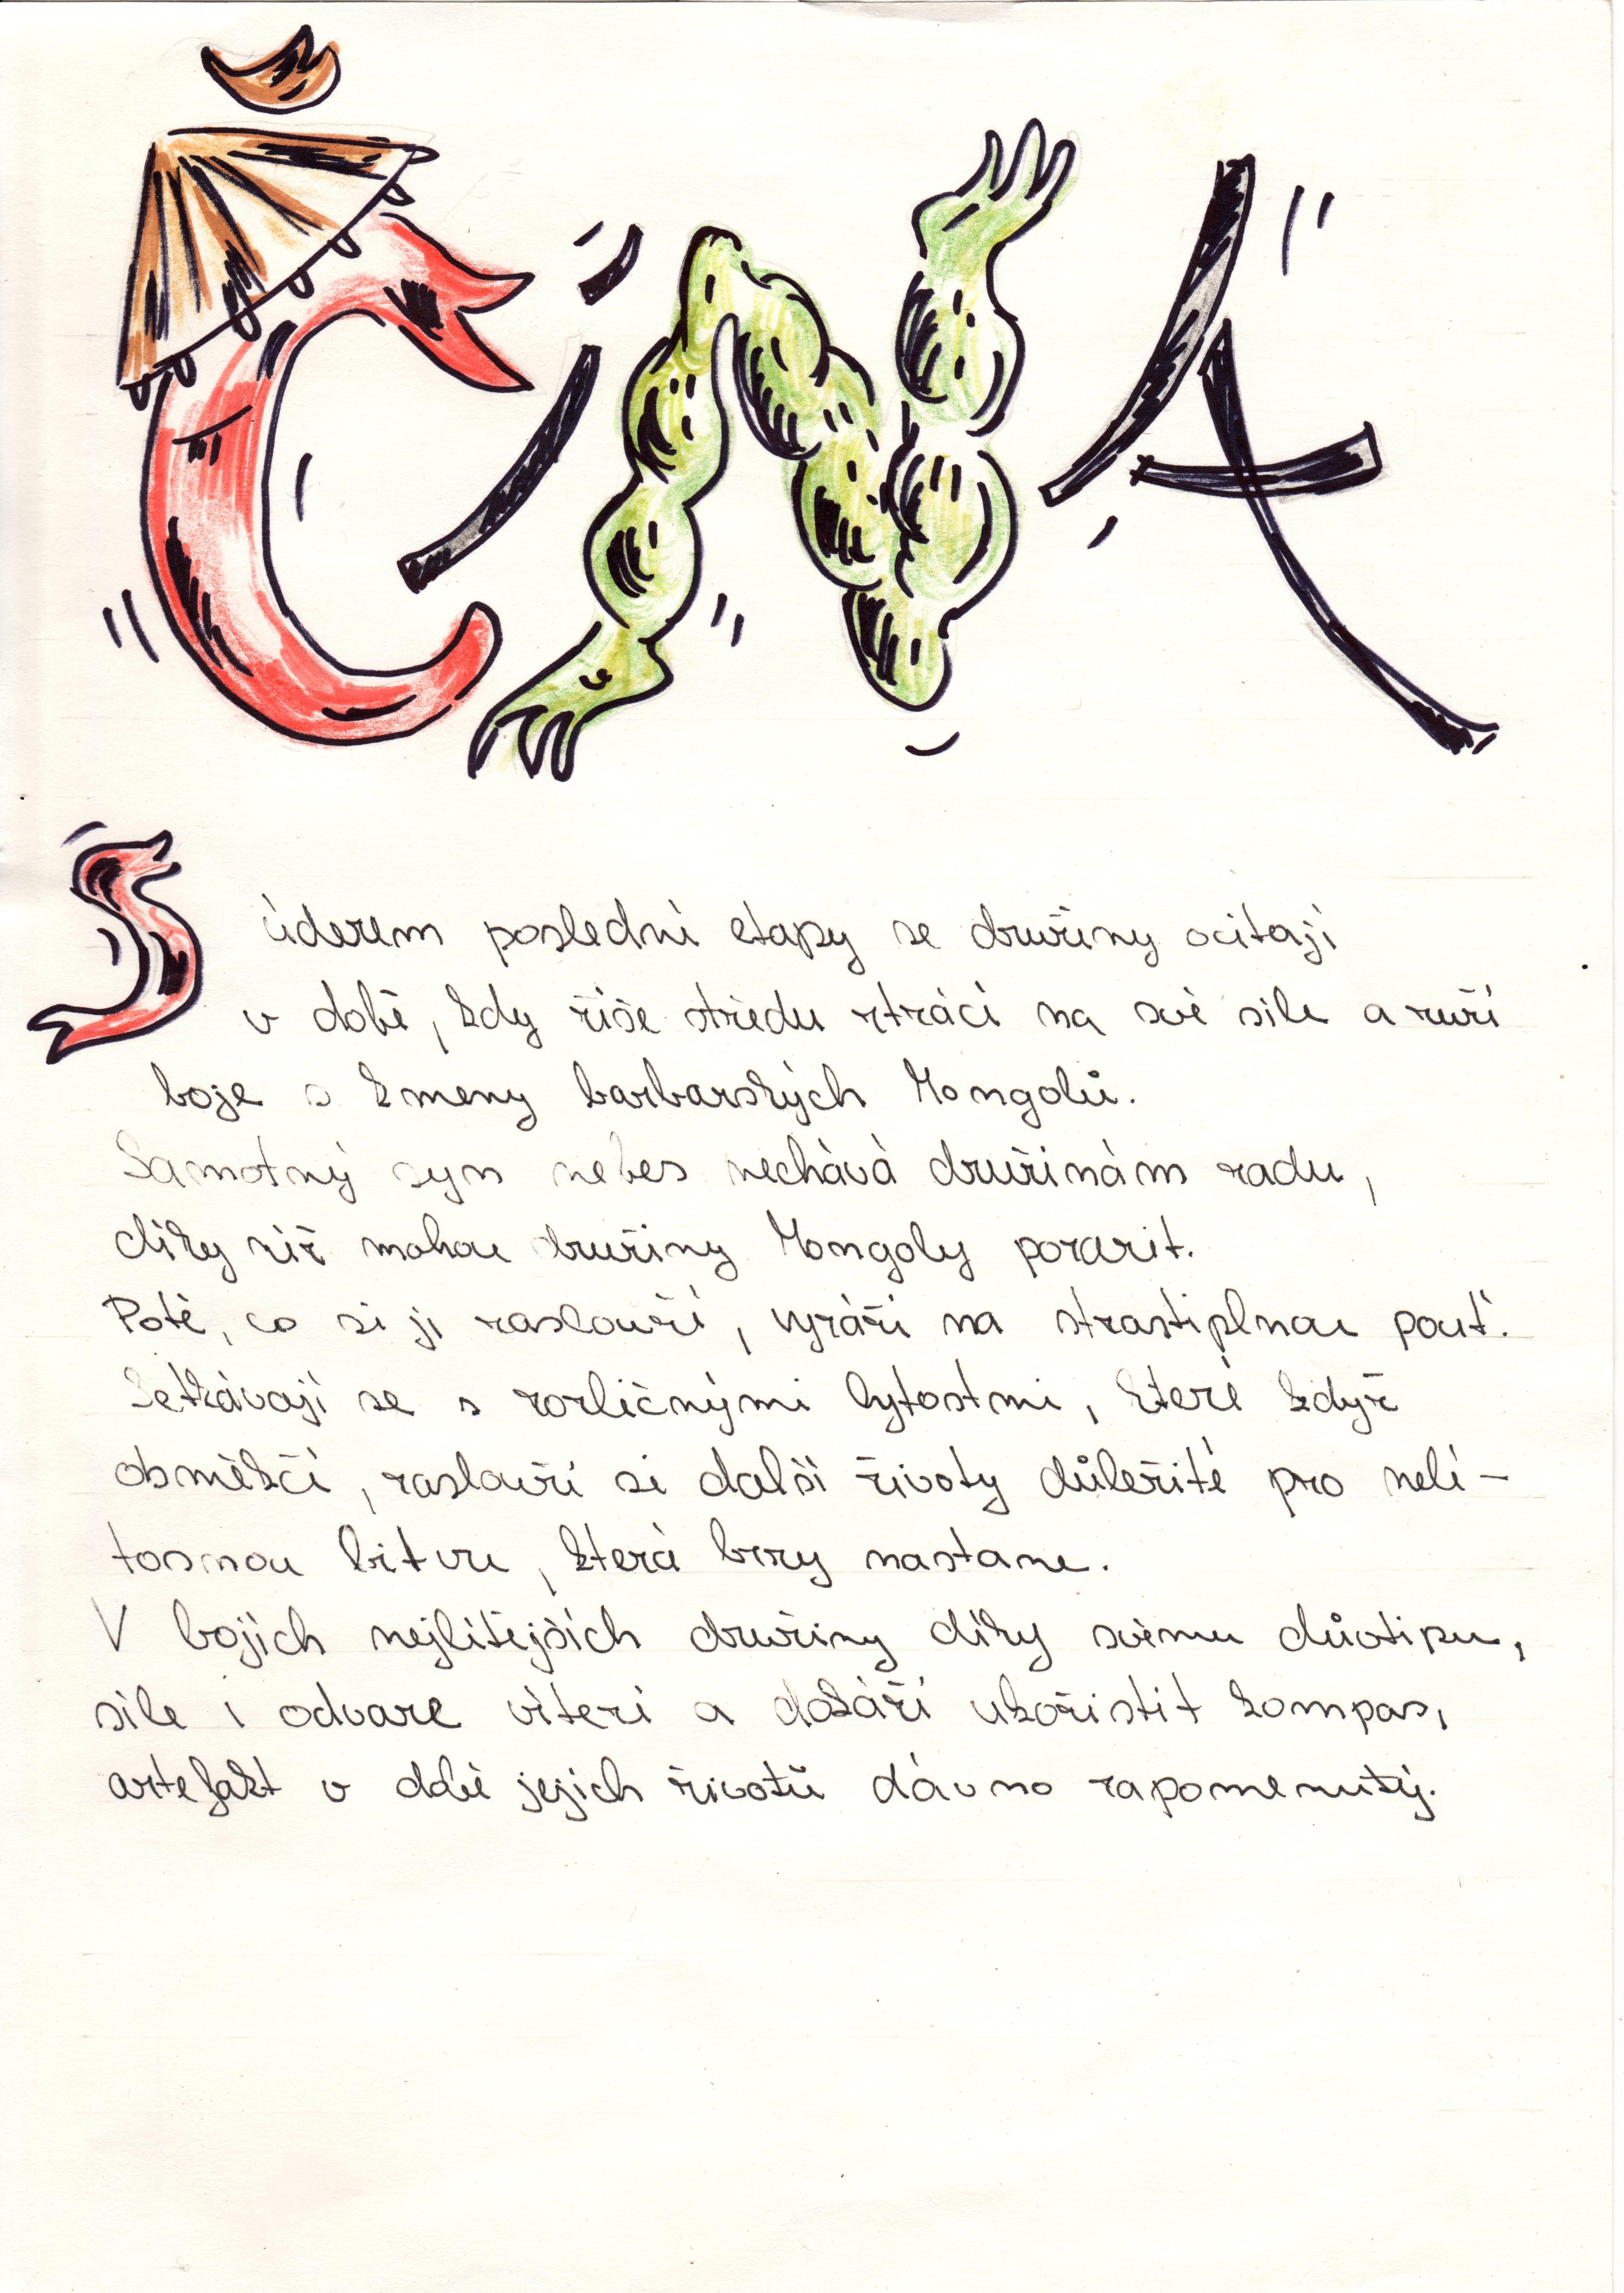 ČÍNA
S úderem poslední etapy se družiny ocitají
v době, kdy říše středu ztrácí na své síle a zuří
boje s kmeny barbarských Mongolů.
Samotný syn nebes nechává družinám radu,
díky níž mohou družiny Mongoly porazit.
Poté, co si ji zaslouží, vyráží na strastiplnou pouť.
Setkávají se s rozličnými bytostmi, které když
obměkčí, zaslouží si další životy důležité pro nelí-
tosnou bitvu, která brzy nastane.
V bojích nejlítějších družiny díky svému důvtipu,
síle i odvaze vítězí a dokáží ukořistit kompas,
artefakt v době jejich životů dávno zapomenutý.